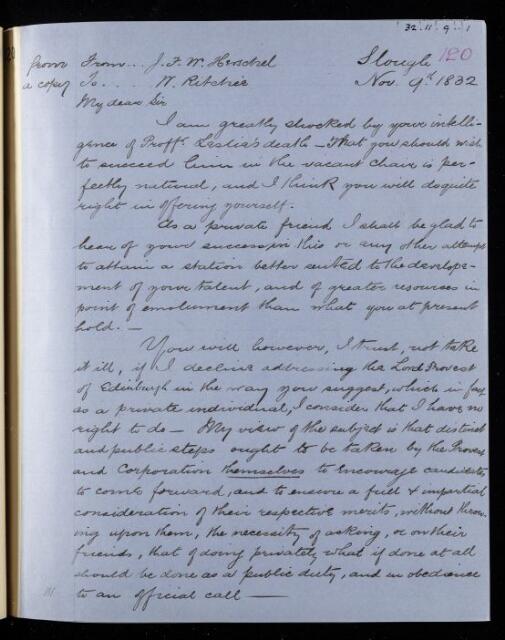 32.11.9.1
from From... J. F. W. Herschel Slough 120
a copy To.... W. Ritchie Nov. 9th 1832
My dear Sir
I am greatly shocked by your intelli-
gence of Proffr. Leslie's death - That you should wish
to succeed him in the vacant chair is per-
fectly natural, and I think you will do quite
right in offering yourself.
As a private friend I shall be glad to
hear of your success in this or any other attempt
to attain a station better suited to the develope-
ment of your talent, and of greater resources in
point of emolument than what you at present
hold. -
You will however, I trust, not take
it ill, if I decline addressing the Lord Provost
of Edinburgh in the way you suggest, which in fact
as a private individual, I consider that I have no
right to do - My view of the subject is that distinct
and public steps ought to be taken by the Provost
and Corporation themselves to encourage candidates
to come forward, and to ensure a full & impartial
consideration of their respective merits, without throw-
ing upon them, the necessity of asking, or on their
friends, that of doing privately what if done at all
should be done as a public duty, and in obedience
to an official call -